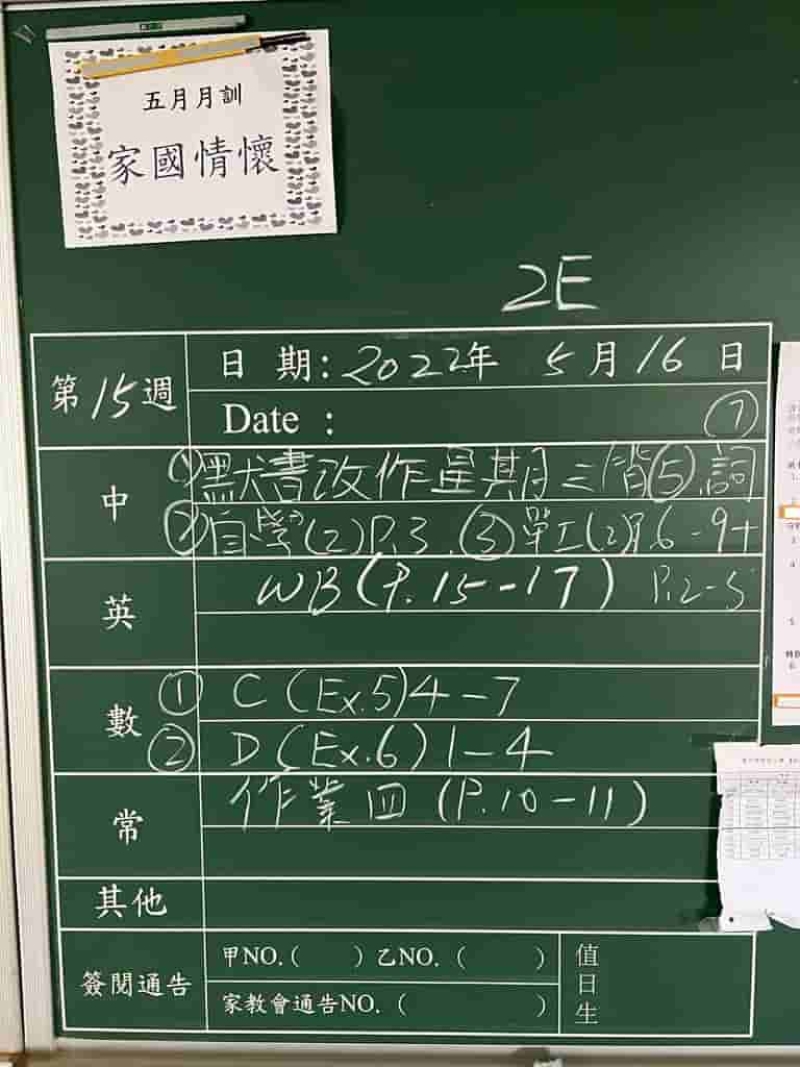 五月月訓
家國情懷
2E
第15週
日 期: 2022年 5月16日
Date : ⑦
中
①默書改作星期三背⑤詞
②自學(2)P.3 ③單工(2)P.6-9+
英
WB(P.15-17) P.2-5
數
① C (Ex.5)4-7
② D (Ex.6) 1-4
常
作業四 (P.10-11)
其他
簽閱通告
甲NO.( ) 乙NO. ( )
家教會通告NO. ( )
值日生